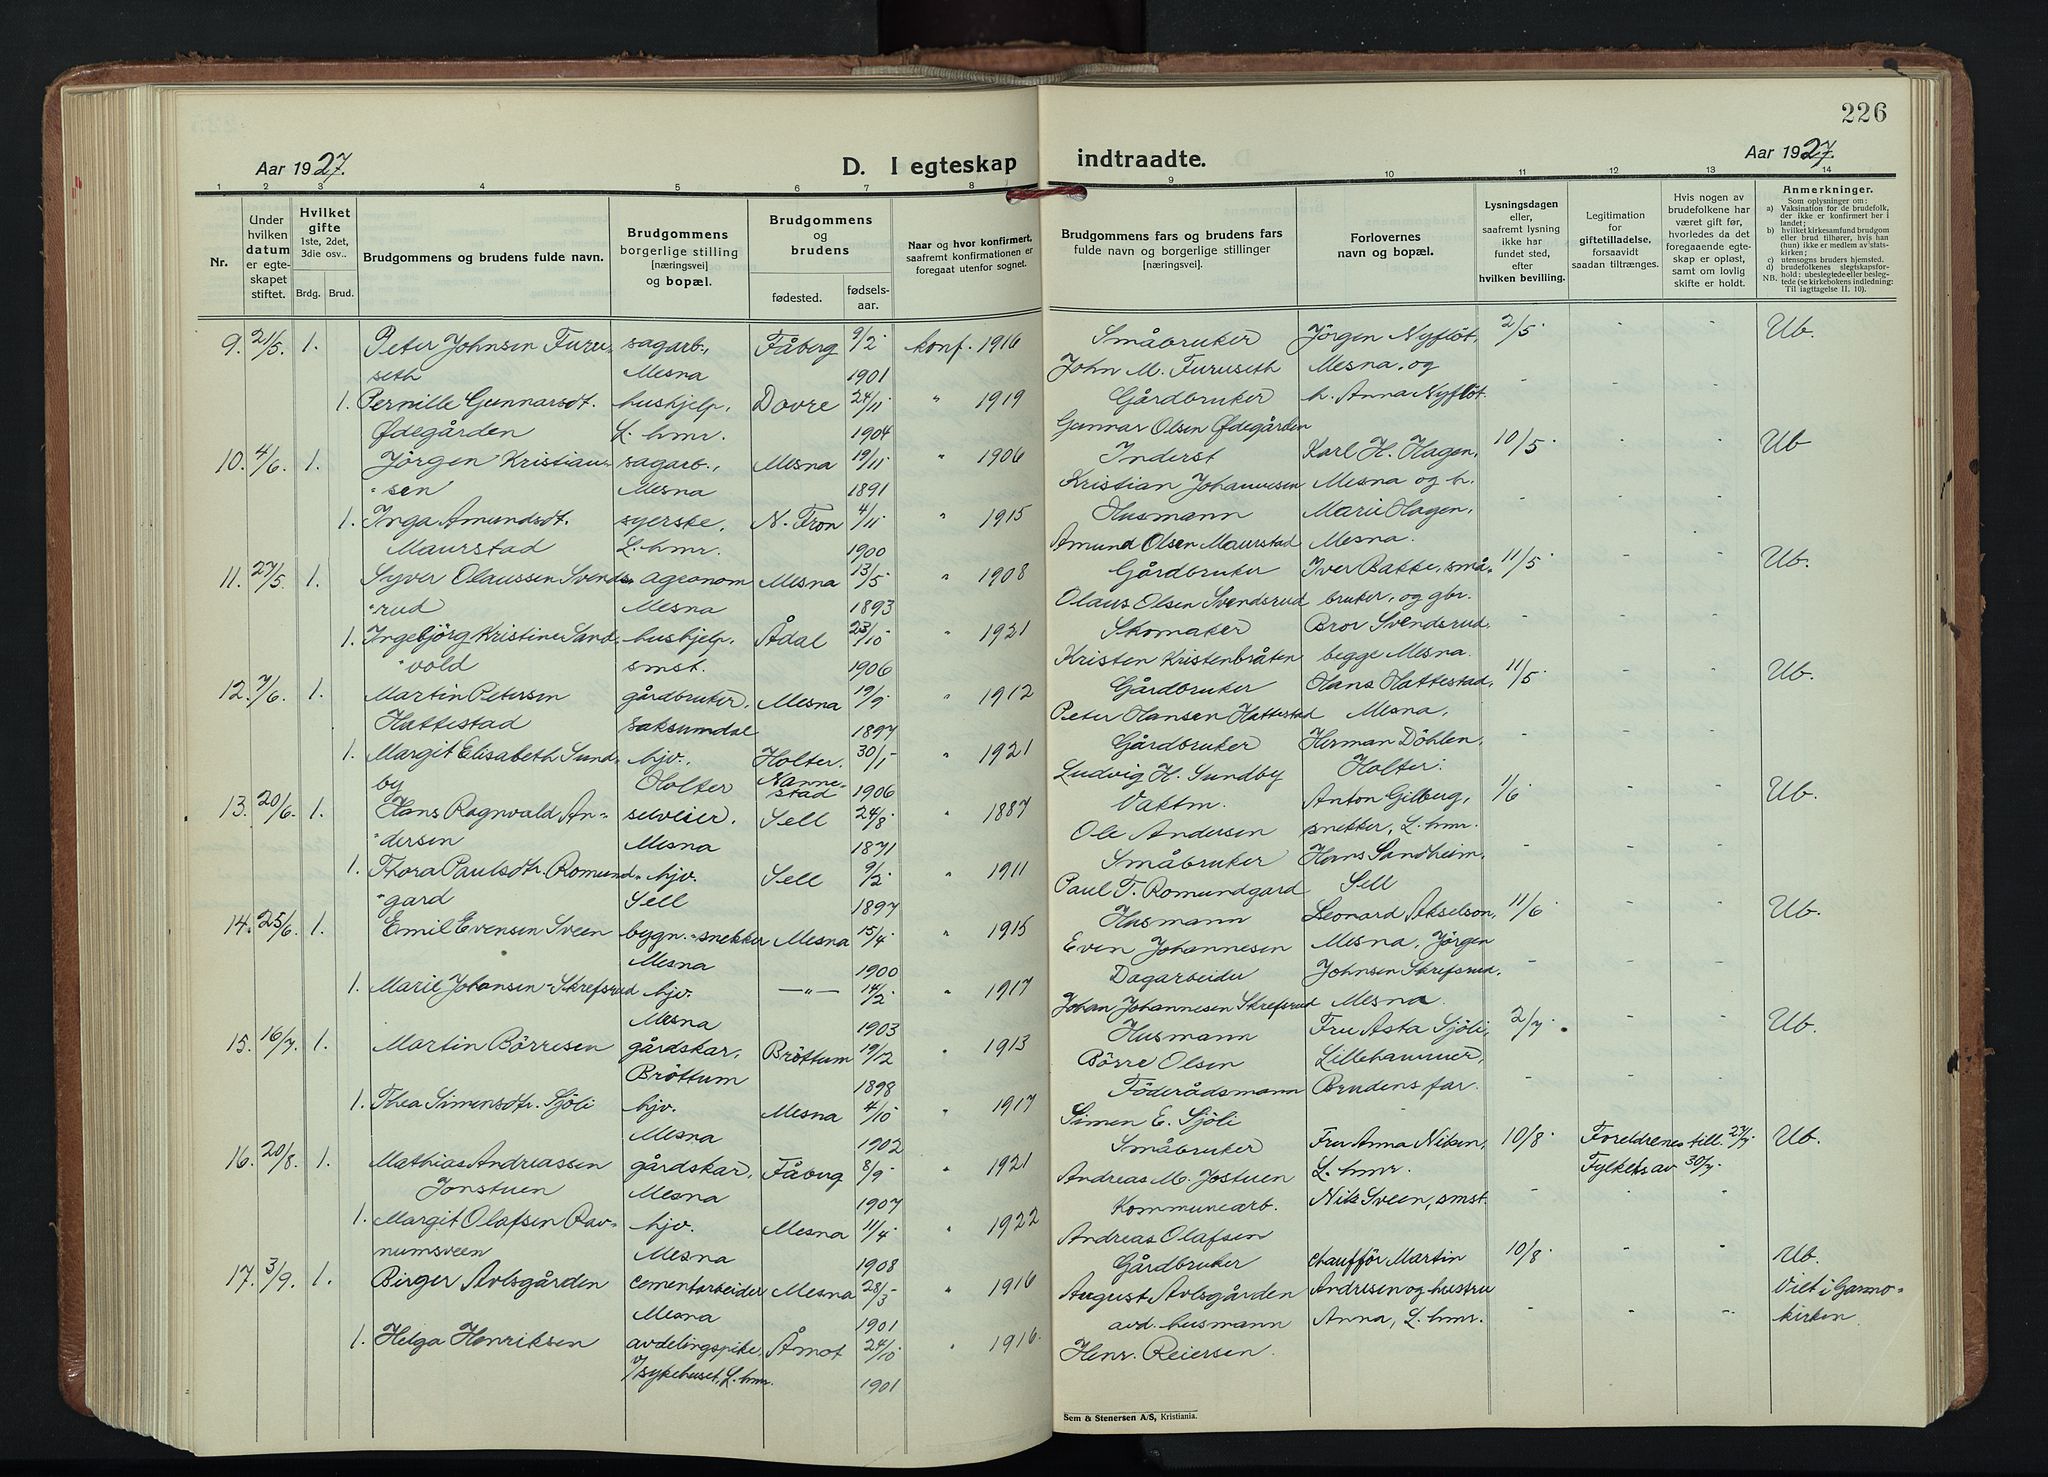 226
Aar 1927.
D. I egteskap
indtraadte.
Aar 1927.
1 2 3 4 5 6 7 8 9 10 11 12 13 14
Nr.
Under hvilken datum er egteskapet stiftet.
Hvilket gifte 1ste, 2det, 3die osv..
Brdg. Brud.
Brudgommens og brudens fulde navn.
Brudgommens borgerlige stilling [næringsvei] og bopæl.
Brudgommens og brudens
fødested.
fødsels-aar.
Naar og hvor konfirmert, saafremt konfirmationen er foregaat utenfor sognet.
Brudgommens fars og brudens fars fulde navn og borgerlige stillinger [næringsvei]
Forlovernes navn og bopæl.
Lysningsdagen eller, saafremt lysning ikke har fundet sted, efter hvilken bevilling.
Legitimation for giftetilladelse, forsaavidt saadan tiltrænges.
Hvis nogen av brudefolkene har været gift før, hvorledes da det foregaaende egteskap er opløst, samt om lovlig skifte er holdt.
Anmerkninger.
Som oplysninger om:
a) Vaksination for de brudefolk, der ikke er konfirmert her i landet;
b) hvilket kirkesamfund brudgom eller brud tilhører, hvis han (hun) ikke er medlem av statskirken;
c) utensogns bruders hjemsted.
d) brudefolkenes slegtskapsforhold: ubeslegtede eller beslegtede (se kirkebokens indledning:
NB. Til iagttagelse II. 10).
9. 21/5. 1. Peter Johnsen Furu- sagarb., Fåberg 9/2 konf. 1916 Småbruker Jörgen Nyflöt, 2/5 " " Ub.
seth Mesna 1901 John M. Furuseth Mesna, og
1. Pernille Gunnarsdt. hushjelp, Dovre 24/11 " 1919 Gårdbruker h. Anna Nyflöt.
Ødegården L. hmr. 1904 Gunnar Olsen Ødegården
10. 4/6. 1. Jörgen Kristian- sagarb., Mesna 19/11 " 1906 Inderst Karl H. Hagen, 10/5 " " Ub
sen Mesna 1891 Kristian Johannesen Mesna og h.
1. Inga Amundsdt. syerske, N. Fron 4/11 " 1915 Husmann Marie Hagen,
Maurstad L. hmr. 1900 Amund Olsen Maurstad Mesna.
11. 27/5. 1. Syver Olaussen Svends- agronom Mesna 13/5 " 1908 Gårdbruker Iver Bakke, små- 11/5 " " Ub.
rud Mesna 1893 Olaus Olsen Svendsrud bruker, og gbr.
1. Ingebjörg Kristine Sand- hushjelp, Ådal 23/10 " 1921 Skomaker Bror Svendsrud,
vold smst. 1906 Kristen Kristenbråten begge Mesna.
12. 7/6. 1. Martin Petersen gårdbruker, Mesna 19/9 " 1912 Gårdbruker Hans Hattestad, 11/5 - - Ub.
Hattestad Saksumdal 1897 Peter Hansen Hattestad Mesna,
1. Margit Elisabeth Sund- hjv., Holter, 30/1 " 1921 Gårdbruker Herman Döhlen,
by Holter Nannestad 1906 Ludvig H. Sundby Holter.
13. 20/6. 1. Hans Ragnvald An- selveier, Sell 24/8 " 1887 Vaktm. Anton Gilberg, 1/6 - - Ub.
dersen Mesna 1871 Ole Andersen snekker, L. hmr.
1. Thora Paulsdtr. Romund- hjv. Sell 9/2 " 1911 Småbruker Hans Sandheim,
gard Sell 1897 Paul T. Romundgard Sell
14. 25/6. 1. Emil Evensen Sveen bygn.-snekker Mesna 15/4 " 1915 Husmann Leonard Akselson, 11/6 - - Ub.
Mesna 1900 Even Johannesen Mesna, Jörgen
1. Marie Johansen-Skrefsrud hjv. —"— 14/2 " 1917 Dagarbeider Johnsen Skrefsrud,
Mesna 1903 Johan Johannesen Skrefsrud Mesna.
15. 16/7. 1. Martin Börresen gårdskar, Bröttum 19/12 " 1913 Husmann Fru Asta Sjöli, 2/7 - - Ub.
Bröttum 1898 Börre Olsen Lillehammer,
1. Thea Simensdtr. Sjöli hjv. Mesna 4/10 " 1917 Föderådsmann Brudens far.
Mesna 1902 Simen E. Sjöli
16. 20/8. 1. Mathias Andreassen gårdskar, Fåberg 8/9 " 1921 Småbruker Fru Anna Nilsen, 10/8 Foreldrenes till. 27/7. Ub.
Jonstuen Mesna 1907 Andreas M. Jostuen L. hmr. Fylkets av 30/7.
1. Margit Olafsen Rav- hjv. Mesna 11/4 " 1922 Kommunearb. Nils Sveen, smst.
numsveen Mesna 1908 Andreas Olafsen
17. 3/9. 1. Birger Avlsgården cementarbeider Mesna 28/3 " 1916 Gårdbruker chauffør Martin 10/8 " " Ub.
Mesna 1901 August Avlsgården Andresen og hustru Viet i Garmo-
1. Helga Henriksen avdelingspike, Åmot 24/10 " 1916. avd. husmann Anna, L. hmr. kirken
v/sykehuset, L. hmr. 1901 Henr. Reiersen.
Sem & Stenersen A/S, Kristiania.